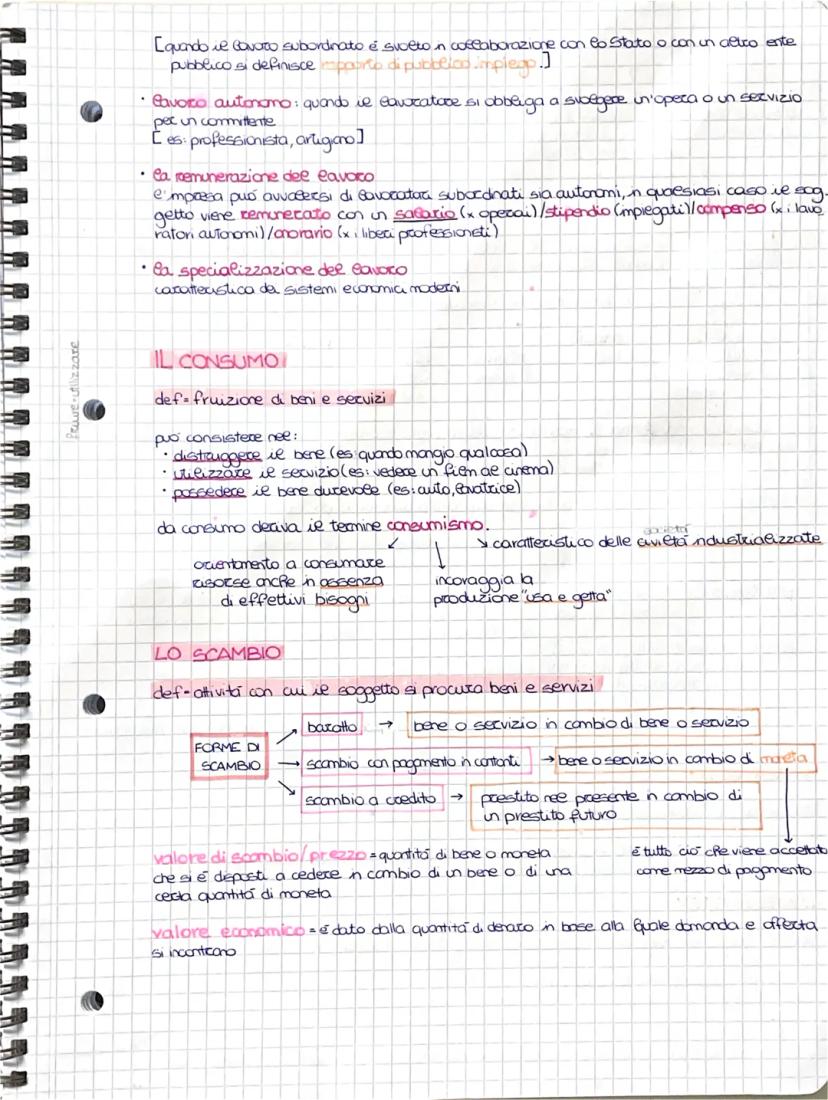 [quando il lavoro subordinato é svolto in collaborazione con lo Stato o con un altro ente
pubblico si definisce rapporto di pubblico impiego.]
• lavoro autonomo: quando il lavoratore si obbliga a svolgere un'opera o un servizio
per un committente
[es: professionista, artigiano]
• la remunerazione del lavoro
l'impresa può avvalersi di lavoratori subordinati sia autonomi, in qualsiasi caso il sog-
getto viene remunerato con un salario (x operai)/stipendio (impiegati)/compenso (x i lavo
ratori autonomi)/onorario (x i liberi professionisti)
• la specializzazione del lavoro
caratteristica dei sistemi economici moderni
fruire=utilizzare
IL CONSUMO
def= fruizione di beni e servizi
può consistere nel:
• distruggere il bene (es: quando mangio qualcosa)
• utilizzare il servizio (es: vedere un film al cinema)
• possedere il bene durevole (es: auto, lavatrice)
da consumo deriva il termine consumismo.
società
caratteristico delle civiltà industrializzate
orientamento a consumare
risorse anche in assenza
di effettivi bisogni
incoraggia la
produzione "usa e getta"
LO SCAMBIO
def= attività con cui il soggetto si procura beni e servizi
FORME DI
SCAMBIO
baratto → bene o servizio in cambio di bene o servizio
scambio con pagamento in contanti → bene o servizio in cambio di moneta
scambio a credito → prestito nel presente in cambio di
un prestito futuro
è tutto ciò che viene accettato
come mezzo di pagamento
valore di scambio/prezzo = quantità di bene o moneta
che si é disposti a cedere in cambio di un bene o di una
certa quantità di moneta
valore economico = é dato dalla quantità di denaro in base alla quale domanda e offerta
si incontrano